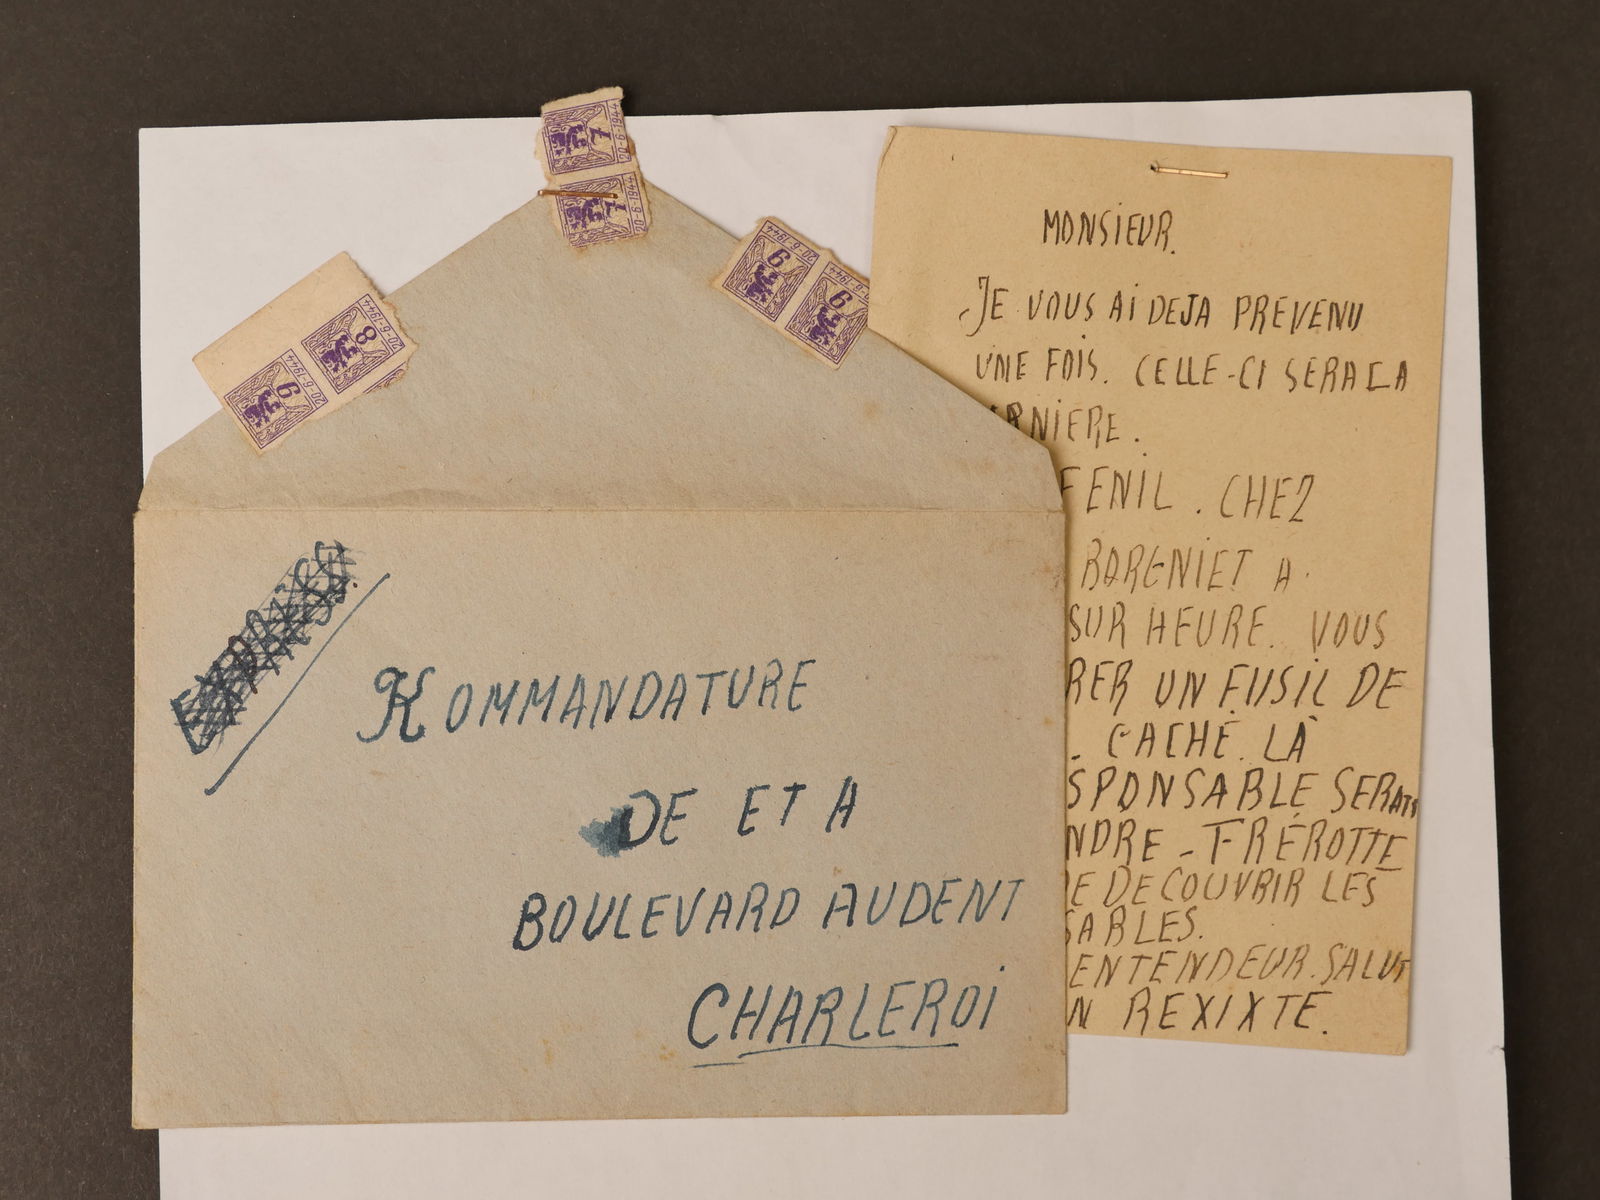 7
20-6-1944
7
20-6-1944
6
20-6-1944
6
20-6-1944
8
20-6-1944
6
20-6-1944
EXPRÈS
KOMMANDATURE
DE ET A
BOULEVARD AUDENT
CHARLEROI
MONSIEUR.
JE VOUS AI DEJA PREVENU
UNE FOIS. CELLE-CI SERA LA
RNIERE.
FENIL. CHEZ
BORGNIET A.
SUR HEURE. VOUS
RER UN FUSIL DE
. CACHÉ. LÀ
SPONSABLE SERAIT
NDRE - FRÉROTTE
E DECOUVRIR LES
SABLES.
ENTENDEUR. SALUT
N REXIXTE.